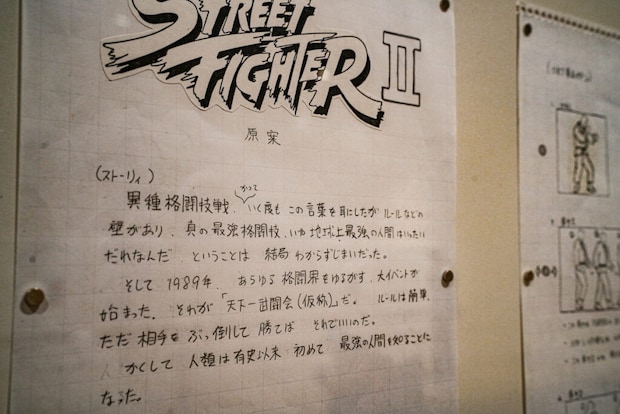 STREET
FIGHTER II
原案
(ストーリィ)
異種格闘技戦、かつていく度も この言葉を耳にしたが ルールなどの
壁があり、真の最強格闘技、いや 地球上最強の人間はいったい
だれなんだ、ということは 結局 わからずじまいだった。
そして 1989年、あらゆる 格闘界をゆるがす、大イベントが
始まった。それが「天下一武闘会(仮称)」だ。ルールは簡単、
ただ 相手を ぶっ倒して 勝てば それでいいのだ。
かくして 人類は有史以来 初めて 最強の人間を知ることに
なった。